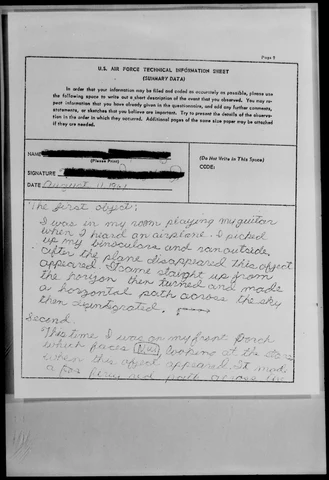 Page 5
U.S. AIR FORCE TECHNICAL INFORMATION SHEET
(SUMMARY DATA)
In order that your information may be filed and coded as accurately as possible, please use
the following space to write out a short description of the event that you observed. You may re-
peat information that you have already given in the questionnaire, and add any further comments,
statements, or sketches that you believe are important. Try to present the details of the observa-
tion in the order in which they occurred. Additional pages of the same size paper may be attached
if they are needed.
NAME
(Please Print)
SIGNATURE
DATE August 11,
(Do Not Write in This Space)
CODE:
The first object:
I was in my room playing my guitar
when I heard an airplane. I picked
up my binoculars and ran outside.
After the plane disappeared this object
appeared. It came staight up from
the horizon then turned and made
a horzontal path across the sky
then disintegrated.
Second
This time I was on my front porch
which faces looking at the stars
when this object appeared. It made
a path across the